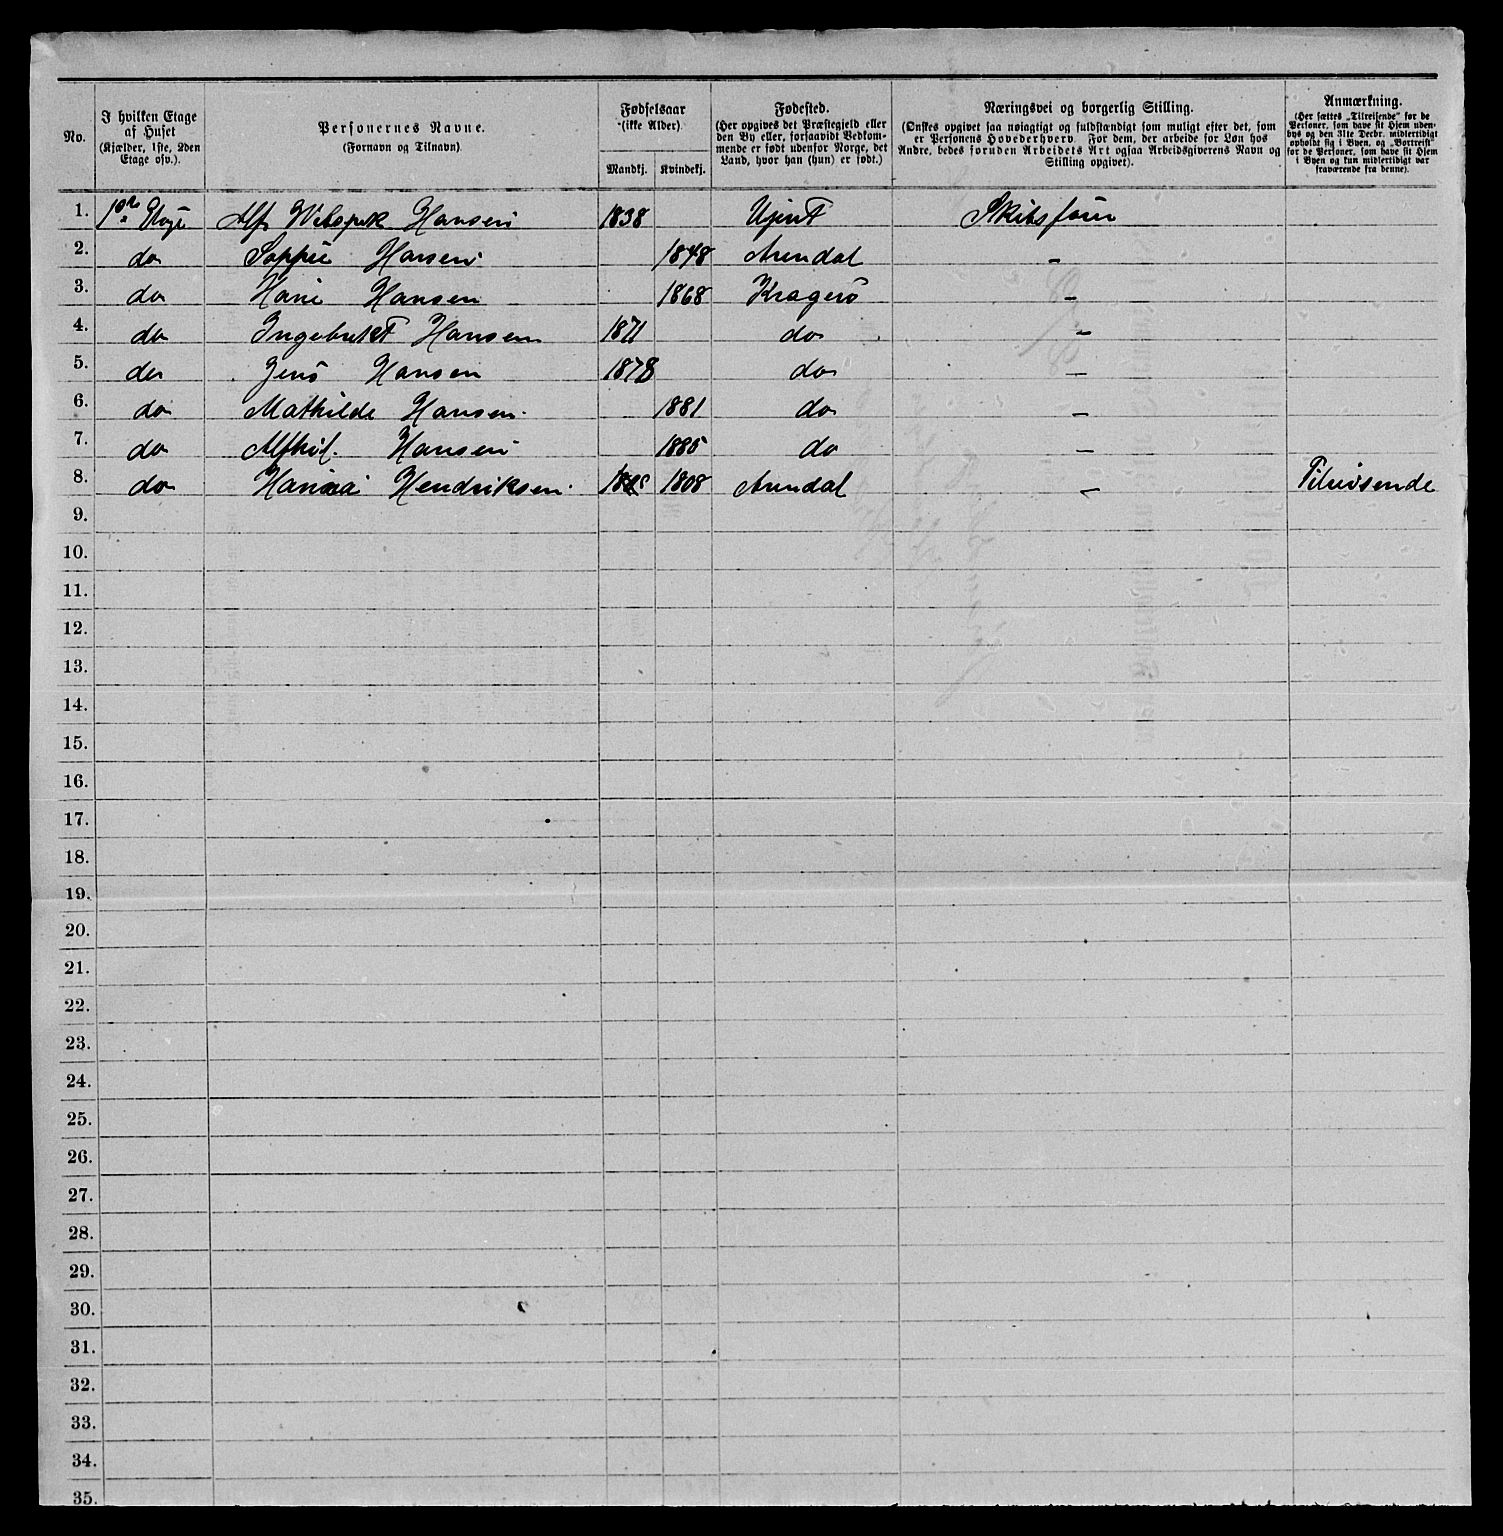 No.
I hvilken Etage
af Huset
(Kjælder, 1ste, 2den
Etage osv.).
Personernes Navne.
(Fornavn og Tilnavn)
Fødselsaar
(ikke Alder).
Mandkj. Kvindekj.
Fødested.
(Her opgives det Præstegjeld eller
den By eller, forsaavidt Vedkom-
mende er født udenfor Norge, det
Land, hvor han (hun) er født.)
Næringsvei og borgerlig Stilling.
(Ønskes opgivet saa nøiagtigt og fuldstændigt som muligt efter det, som
er Personens Hovederhverv. For dem, der arbeide for Løn hos
Andre, bedes foruden Arbeidets Art ogsaa Arbeidsgiverens Navn og
Stilling opgivet).
Anmærkning.
(Her sættes „Tilreisende" for de
Personer, som have sit Hjem uden-
bys og den 31te Decbr. midlertidigt
opholdt sig i Byen, og „Bortreist"
for de Personer, som have sit Hjem
i Byen og kun midlertidigt var
fraværende fra denne).
1. Hansen 1838
2. do Hansen 1848 Arendal -
3. do Hansen 1868 Kragerö -
4. do Hansen 1871 do -
5. do Hansen 1878 do -
6. do Mathilde Hansen. 1881 do -
7. do Hansen 1885 do -
8. do Hendriksen. 1808 Arendal - Tilreisende
9.
10.
11.
12.
13.
14.
15.
16.
17.
18.
19.
20.
21.
22.
23.
24.
25.
26.
27.
28.
29.
30.
31.
32.
33.
34.
35.